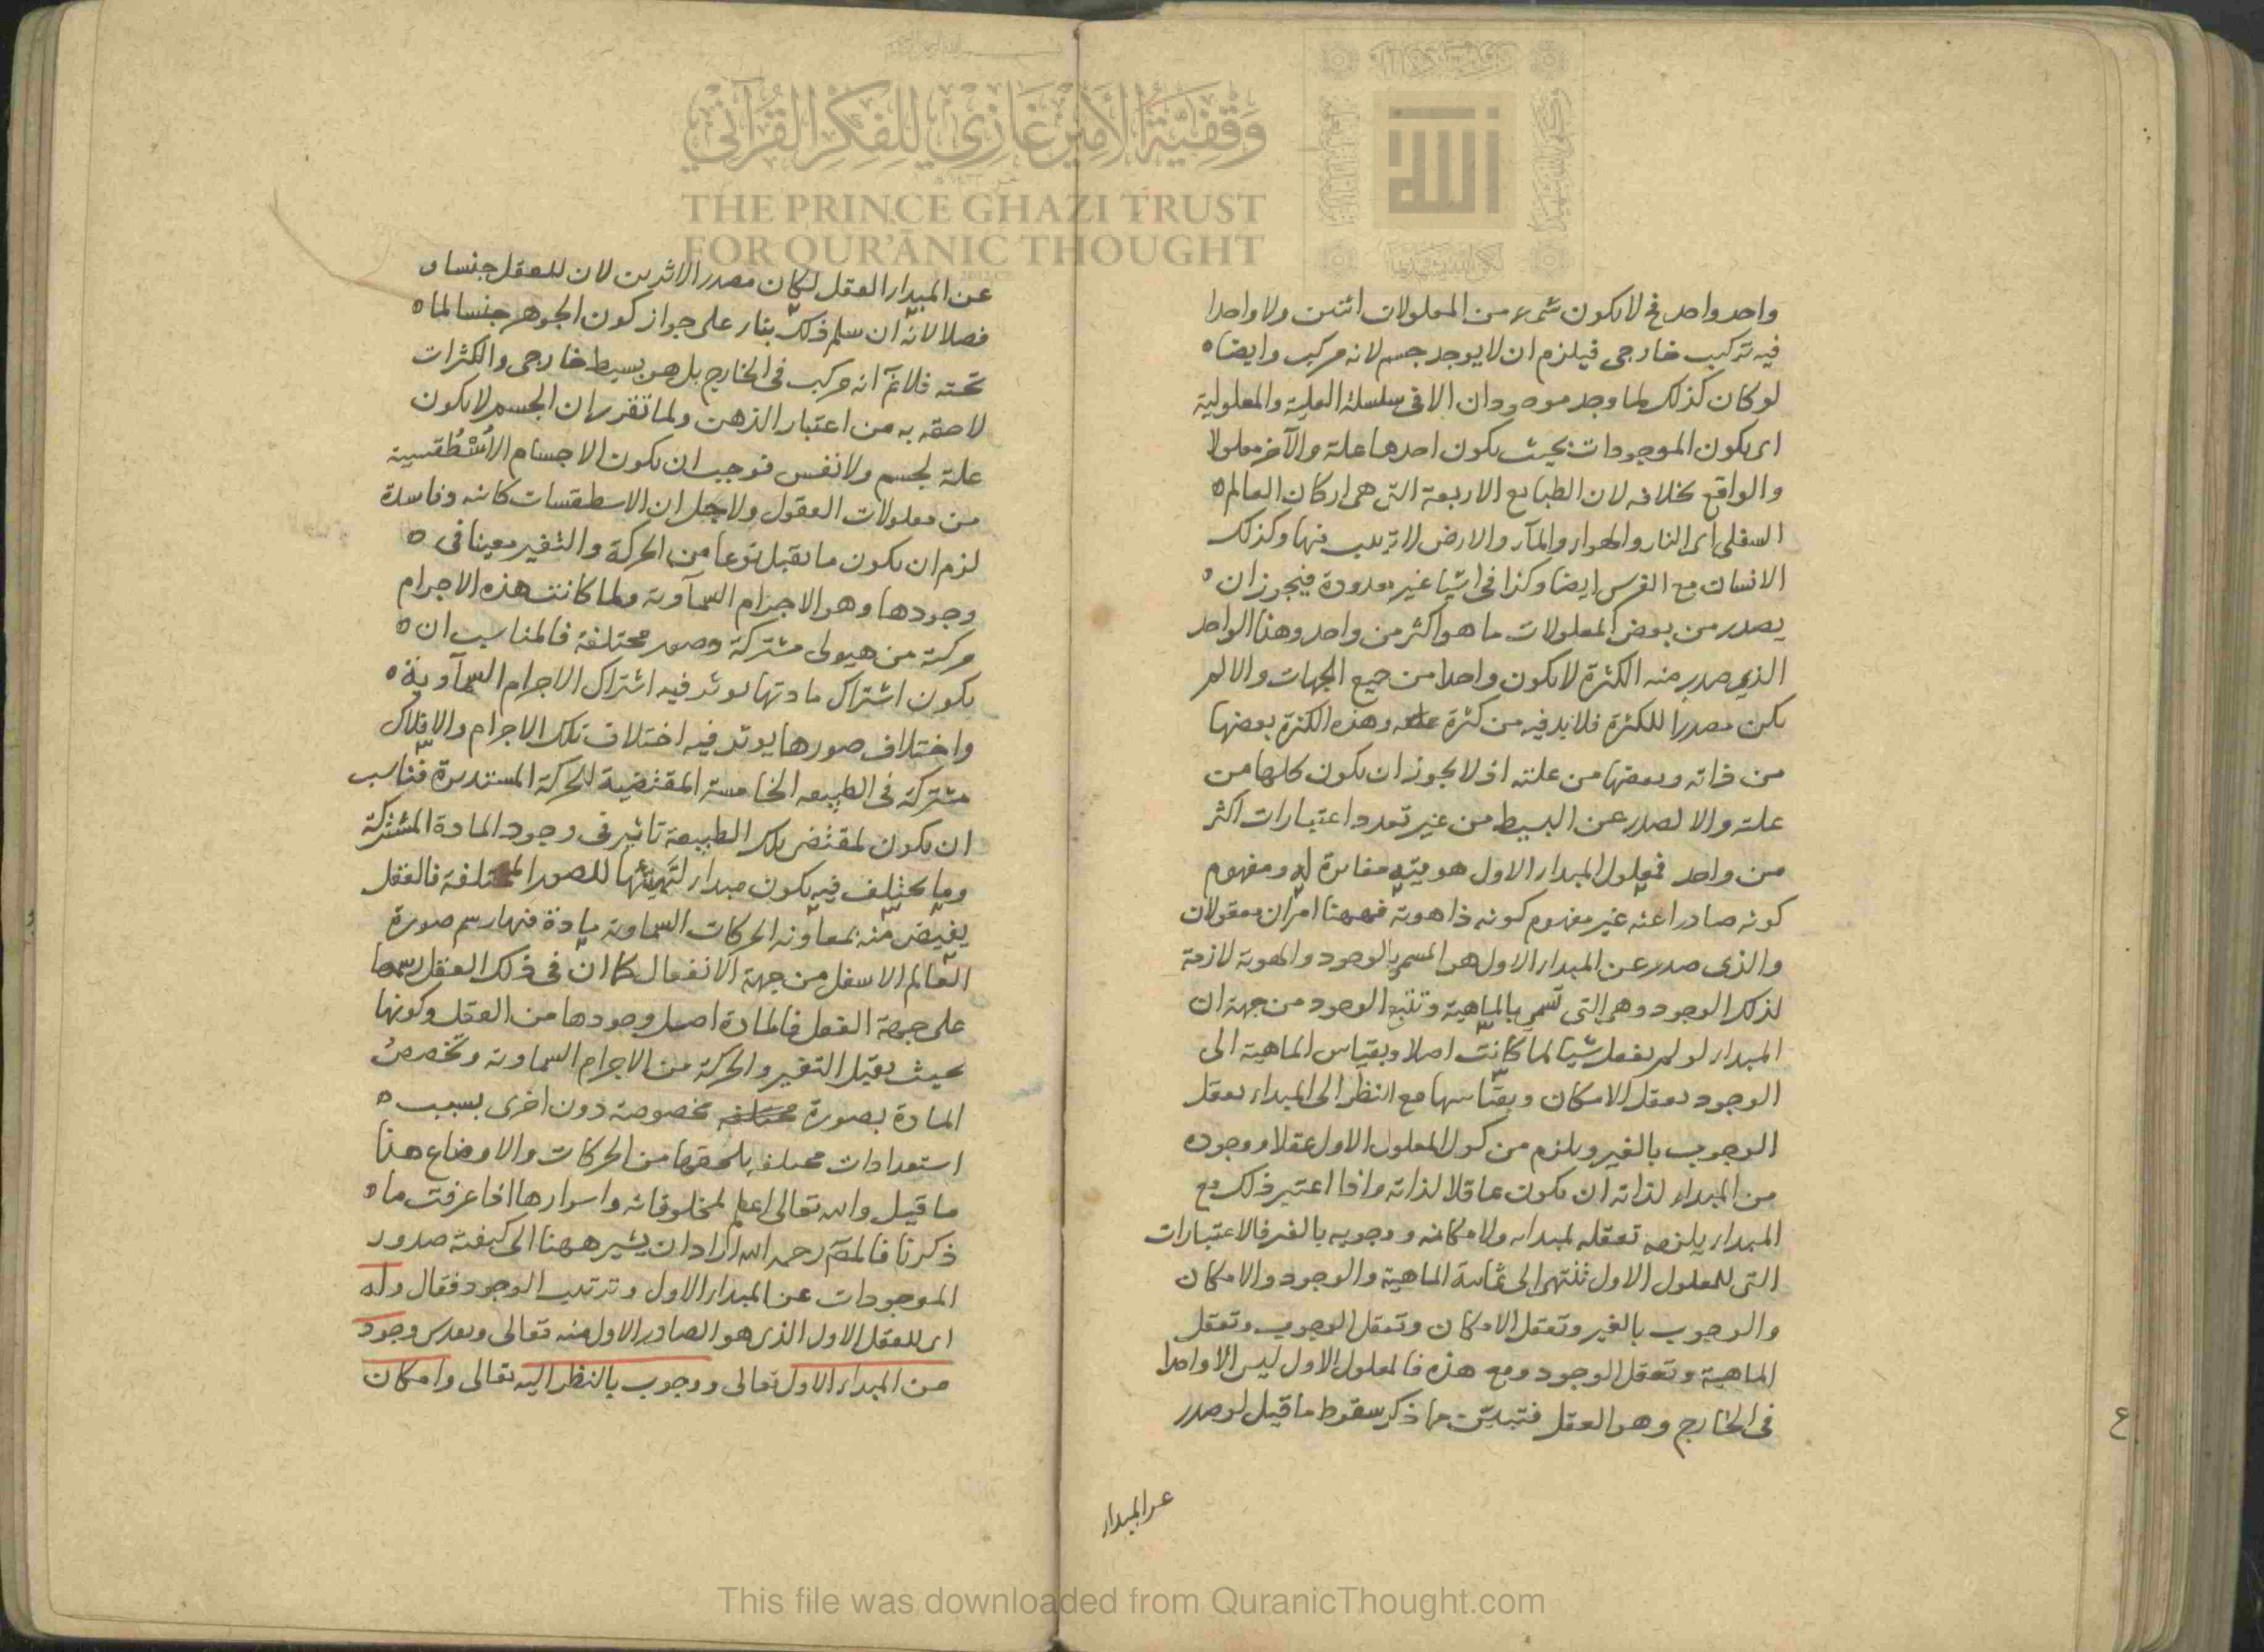 واحد واحد فح لا يكون شيء من المعلولات اثنين ولا واحدا
فيه تركيب خارجي فيلزم ان لا يوجد جسم لانه مركب وايضا
لو كان كذلك لما وجد موجودان الا في سلسلة العلية والمعلولية
اى يكون الموجودات بحيث يكون احدها علة والآخر معلولا
والواقع بخلافه لان الطبايع الاربعة التي هي اركان العالم
السفلي اى النار والهواء والمآء والارض لا ترتيب فيها وكذلك
الانسان مع الفرس ايضا وكذا في اشيا غير معدودة فيجوز ان
يصدر من بعض المعلولات ما هو اكثر من واحد وهذا الواحد
الذي صدر منه الكثرة لا يكون واحدا من جميع الجهات والا لم
يكن مصدرا للكثرة فلا بد فيه من كثرة وهذه الكثرة بعضها
من ذاته وبعضها من علته اذ لا يجوز ان يكون كلها من
علته والا لصدر عن البسيط من غير تعدد اعتبارات اكثر
من واحد فمعلول المبدأ الاول هويته مغايرة له ومفهوم
كونه صادرا عنه غير مفهوم كونه ذا هوية فههنا امران معقولان
والذى صدر عن المبدأ الاول هو المسمى بالوجود والهوية لازمة
لذلك الوجود وهى التي تسمى بالماهية وتتبع الوجود من جهة ان
المبدأ لو لم يفعل شيا لما كانت اصلا وبقياس الماهية الى
الوجود يعقل الامكان وبقياسها مع النظر الى المبدأ يعقل
الوجوب بالغير ويلزم من كون المعلول الاول عقلا ووجوده
من المبدأ لذاته ان يكون عاقلا لذاته واذا اعتبر ذلك مع
المبدأ يلزمه تعقله لمبدأه ولامكانه ووجوبه بالغير فالاعتبارات
التي للمعلول الاول تنتهي الى ثمانية الماهية والوجود والامكان
والوجوب بالغير وتعقل الامكان وتعقل الوجوب وتعقل
الماهية وتعقل الوجود ومع هذه فالمعلول الاول ليس الا واحدا
في الخارج وهو العقل فتبين مما ذكر سقوط ما قيل لو صدر
عن المبدأ
عن المبدأ العقل لكان مصدر الاثرين لان للعقل جنسا و
فصلا لانه ان سلم ذلك بناء على جواز كون الجوهر جنسا لما
تحته فلا نم انه مركب في الخارج بل هو بسيط خارجي والكثرات
لاحقة به من اعتبار الذهن ولما تقرر ان الجسم لا يكون
علة لجسم ولا نفس فوجب ان يكون الاجسام الأُسْطُقسية
من معلولات العقول ولاجل ان الاسطقسات كائنة وفاسدة
لزم ان يكون ما يقبل نوعا من الحركة والتغير معينا في
وجودها وهو الاجرام السمآوية ولما كانت هذه الاجرام
مركبة من هيولى مشتركة وصور مختلفة فالمناسب ان
يكون اشتراك مادتها يوثر فيه اشتراك الاجرام السمآوية
واختلاف صورها يوثر فيه اختلاف تلك الاجرام والافلاك
مشتركة في الطبيعة الخامسة المقتضية للحركة المستديرة فناسب
ان يكون لمقتضى تلك الطبيعة تاثير في وجود المادة المشتركة
وما يختلف فيه يكون مبدأ لتهيئها للصور المختلفة فالعقل
يفيض منه بمعاونة الحركات السماوية مادة فيها رسم صورة
العالم الاسفل من جهة الانفعال كما ان في ذلك العقل رسمها
على جهة الفعل فالمادة اصل وجودها من العقل وكونها
بحيث يقبل التغير والحركة من الاجرام السماوية وتخصصُ
المادة بصورة مخصوصة دون اخرى بسبب
استعدادات مختلفة يلحقها من الحركات والاوضاع هذا
ما قيل والله تعالى اعلم بمخلوقاته واسرارها اذا عرفت ما
ذكرنا فالمص رحمه الله اراد ان يشير ههنا الى كيفية صدور
الموجودات عن المبدأ الاول وترتيب الوجود فقال وله
اى للعقل الاول الذى هو الصادر الاول منه تعالى وتقدس وجود
من المبدأ الاول تعالى ووجوب بالنظر اليه تعالى وامكان
وقفية الأمير غازي للفكر القرآني
THE PRINCE GHAZI TRUST
FOR QUR'ĀNIC THOUGHT
الله
This file was downloaded from QuranicThought.com